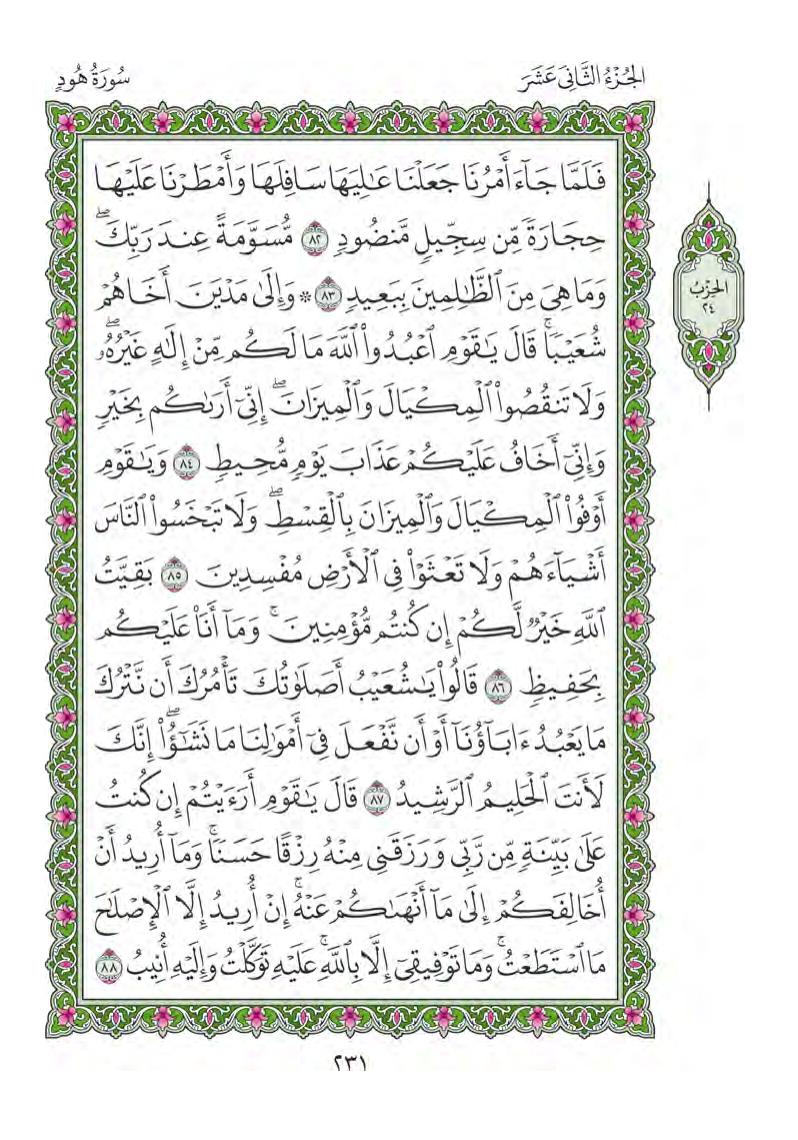 الجُزْءُ الثَّانِيَ عَشَرَ
سُورَةُ هُودٍ
فَلَمَّا جَآءَ أَمْرُنَا جَعَلْنَا عَٰلِيَهَا سَافِلَهَا وَأَمْطَرْنَا عَلَيْهَا
حِجَارَةً مِّن سِجِّيلٍ مَّنضُودٍ ٨٢ مُّسَوَّمَةً عِندَ رَبِّكَۖ
وَمَا هِيَ مِنَ ٱلظَّٰلِمِينَ بِبَعِيدٍ ٨٣ ۞ وَإِلَىٰ مَدْيَنَ أَخَاهُمْ
شُعَيْبًاۚ قَالَ يَٰقَوْمِ ٱعْبُدُوا۟ ٱللَّهَ مَا لَكُم مِّنْ إِلَٰهٍ غَيْرُهُۥۖ
وَلَا تَنقُصُوا۟ ٱلْمِكْيَالَ وَٱلْمِيزَانَۖ إِنِّىٓ أَرَىٰكُم بِخَيْرٍ
وَإِنِّىٓ أَخَافُ عَلَيْكُمْ عَذَابَ يَوْمٍ مُّحِيطٍ ٨٤ وَيَٰقَوْمِ
أَوْفُوا۟ ٱلْمِكْيَالَ وَٱلْمِيزَانَ بِٱلْقِسْطِۖ وَلَا تَبْخَسُوا۟ ٱلنَّاسَ
أَشْيَآءَهُمْ وَلَا تَعْثَوْا۟ فِى ٱلْأَرْضِ مُفْسِدِينَ ٨٥ بَقِيَّتُ
ٱللَّهِ خَيْرٌ لَّكُمْ إِن كُنتُم مُّؤْمِنِينَۚ وَمَآ أَنَا۠ عَلَيْكُم
بِحَفِيظٍ ٨٦ قَالُوا۟ يَٰشُعَيْبُ أَصَلَوٰتُكَ تَأْمُرُكَ أَن نَّتْرُكَ
مَا يَعْبُدُ ءَابَآؤُنَآ أَوْ أَن نَّفْعَلَ فِىٓ أَمْوَٰلِنَا مَا نَشَٰٓؤُا۟ۖ إِنَّكَ
لَأَنتَ ٱلْحَلِيمُ ٱلرَّشِيدُ ٨٧ قَالَ يَٰقَوْمِ أَرَءَيْتُمْ إِن كُنتُ
عَلَىٰ بَيِّنَةٍ مِّن رَّبِّى وَرَزَقَنِى مِنْهُ رِزْقًا حَسَنًاۚ وَمَآ أُرِيدُ أَنْ
أُخَالِفَكُمْ إِلَىٰ مَآ أَنْهَىٰكُمْ عَنْهُۚ إِنْ أُرِيدُ إِلَّا ٱلْإِصْلَٰحَ
مَا ٱسْتَطَعْتُۚ وَمَا تَوْفِيقِىٓ إِلَّا بِٱللَّهِۚ عَلَيْهِ تَوَكَّلْتُ وَإِلَيْهِ أُنِيبُ ٨٨
الحِزْبُ
٢٤
٢٣١